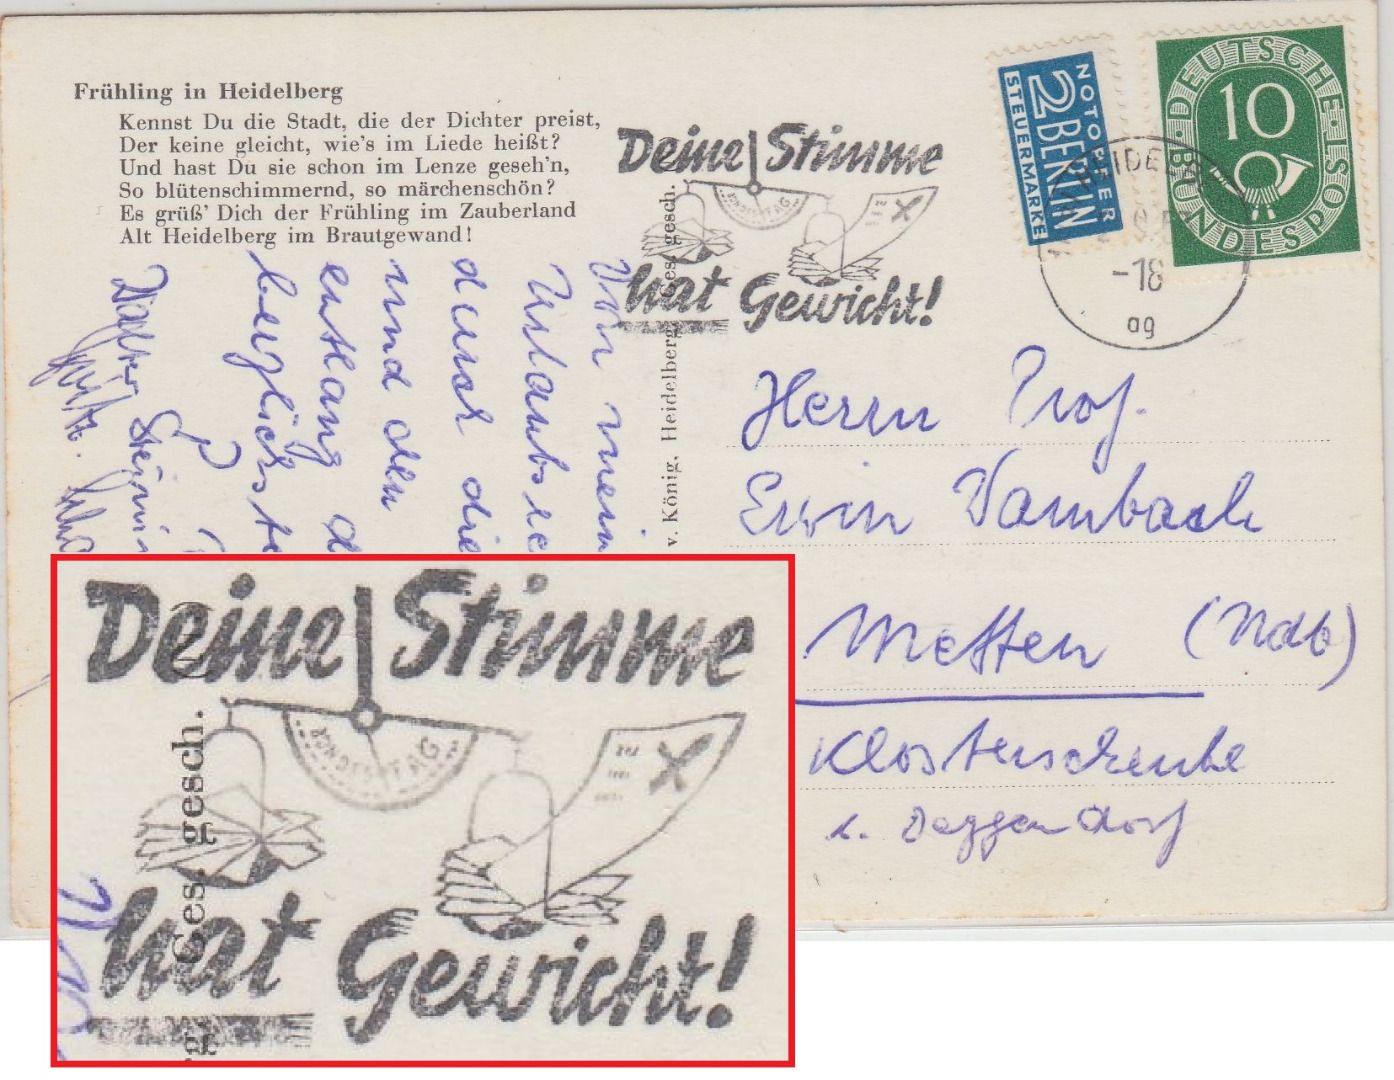 Frühling in Heidelberg
Kennst Du die Stadt, die der Dichter preist,
Der keine gleicht, wie's im Liede heißt?
Und hast Du sie schon im Lenze geseh'n,
So blütenschimmernd, so märchenschön?
Es grüß' Dich der Frühling im Zauberland
Alt Heidelberg im Brautgewand!
Deine Stimme
BUNDESTAG
hat Gewicht!
NOTOPFER
2 BERLIN
STEUERMARKE
DEUTSCHE BUNDESPOST
10
HEIDELB
-18
ag
v. König, Heidelberg. Ges. gesch.
durch die
und den
entlang
Herrn Prof.
Erwin Wambach
Metten (Ndb)
Klosterschenke
b. Deggendorf
Deine Stimme
BUNDESTAG
Ges. gesch.
hat Gewicht!